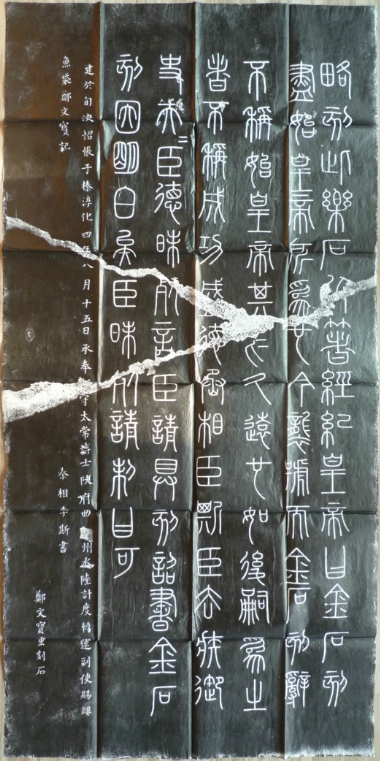 略刻此樂石以箸經紀皇帝曰金石刻
盡始皇帝所為也今襲號而金石刻辭
不稱始皇帝其於久遠也如後嗣為之
者不稱成功盛德丞相臣斯臣去疾御
史夫臣德昧死言臣請具刻詔書金石
刻因明白矣臣昧死請制曰可
逮於旬浹怊悵于榛淳化四年八月十五日承奉郎守太常博士陝府西諸州水陸計度轉運副使賜緋
魚袋鄭文寶記
秦相李斯書
鄭文寶重刻石